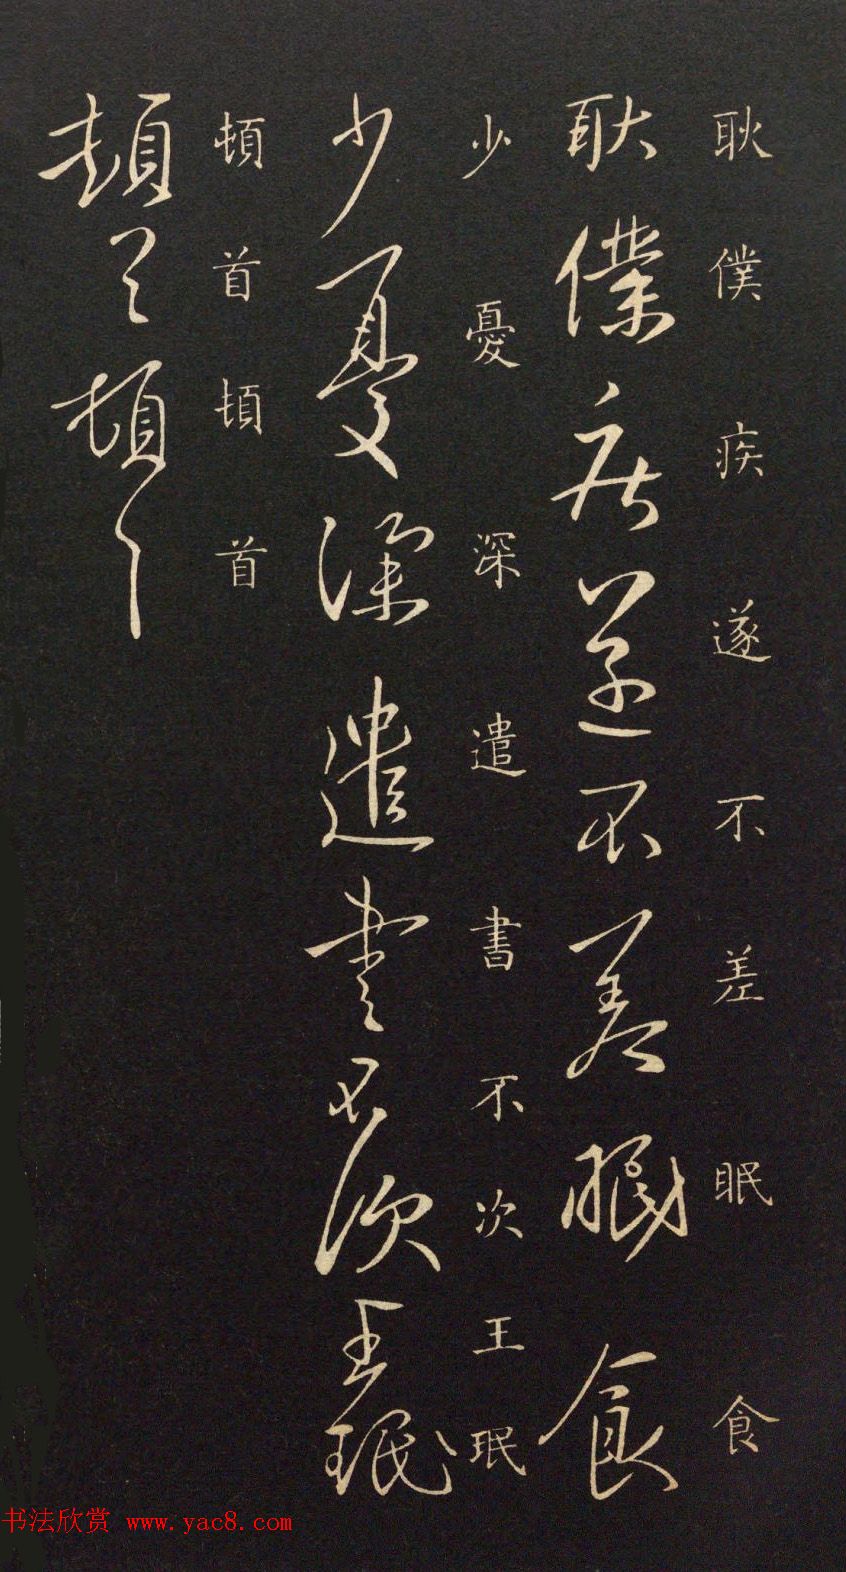 耿僕疾遂不差眠食
耿僕疾遂不差眠食
少憂深遣書不次王珉
少憂深遣書不次王珉
頓首頓首
頓首頓首
书法欣赏 www.yac8.com